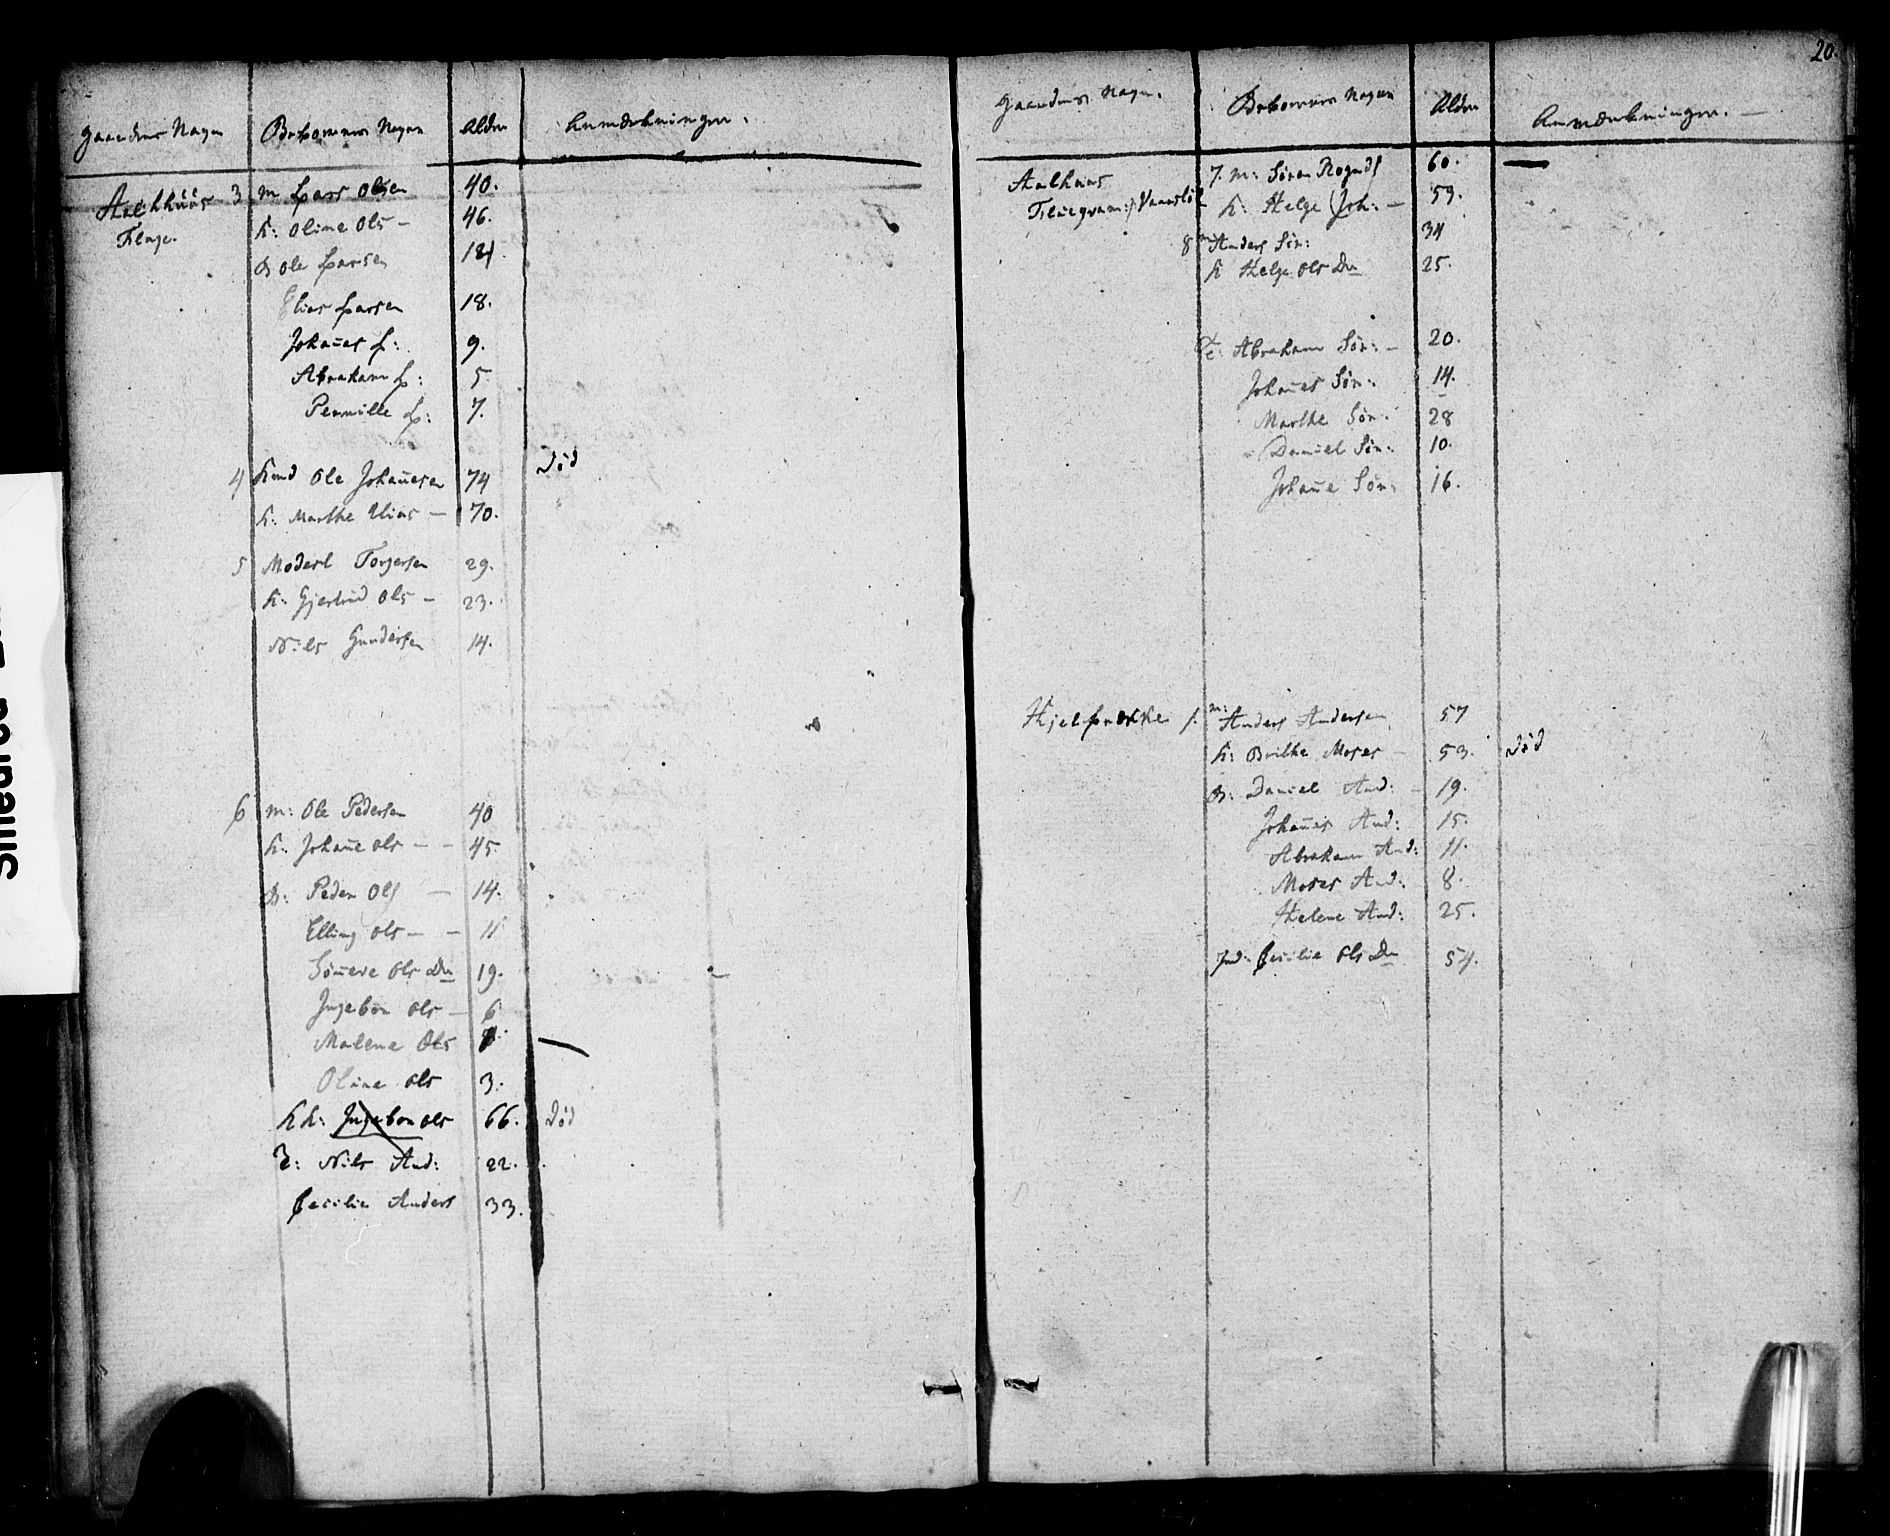 Gaardens Nagn
Beboernes Nagn
Alder
Anmærkninger.
Aalhhuus 3 m Lars Olsen 40.
K: Oline Ols – 46.
B Ole Larsen
Elias Larsen 18.
Johañes L: 9.
Abraham L: 5
Pernille L: 7.
4 Ole Johañesen 74 Død
K: Marthe Elias – 70.
5 Torgersen 29.
K: Gjertrud Ols – 23.
Nils Gundersen 14.
6 m: Ole Pedersen 40
K: Johañe Ols – – 45
B: Peder Ols – 14.
Elling Ols – – 11
Ols Dr 19.
Ingebor Ols – 6
Malene Ols
Oline Ols 3.
Ingebor Ols 66. Død
T: Nils And: 22.
Cecilie Anders 33.
20.
Gaardens Nagn.
Beboernes Nagn
Alder
Anmærkninger. –
Aalhuus 7. m: Søren 60. –
K: Helge Joh: – 59.
8 m Anders Sør: 34
K Helge Ols Dr 25.
Abraham Sør: – 20.
Johañes Sør: 14.
Marthe Sør: 28
Daniel Sør: 10.
Johañe Sør: 16.
1. m: Anders Andersen 57
K: Moses – 53. Død
B: Daniel And: – 19.
Johañes And: 15.
Abraham And: 11.
Moses And: 8.
Helene And: 25.
Ind: Cecilie Ols Dr 54.